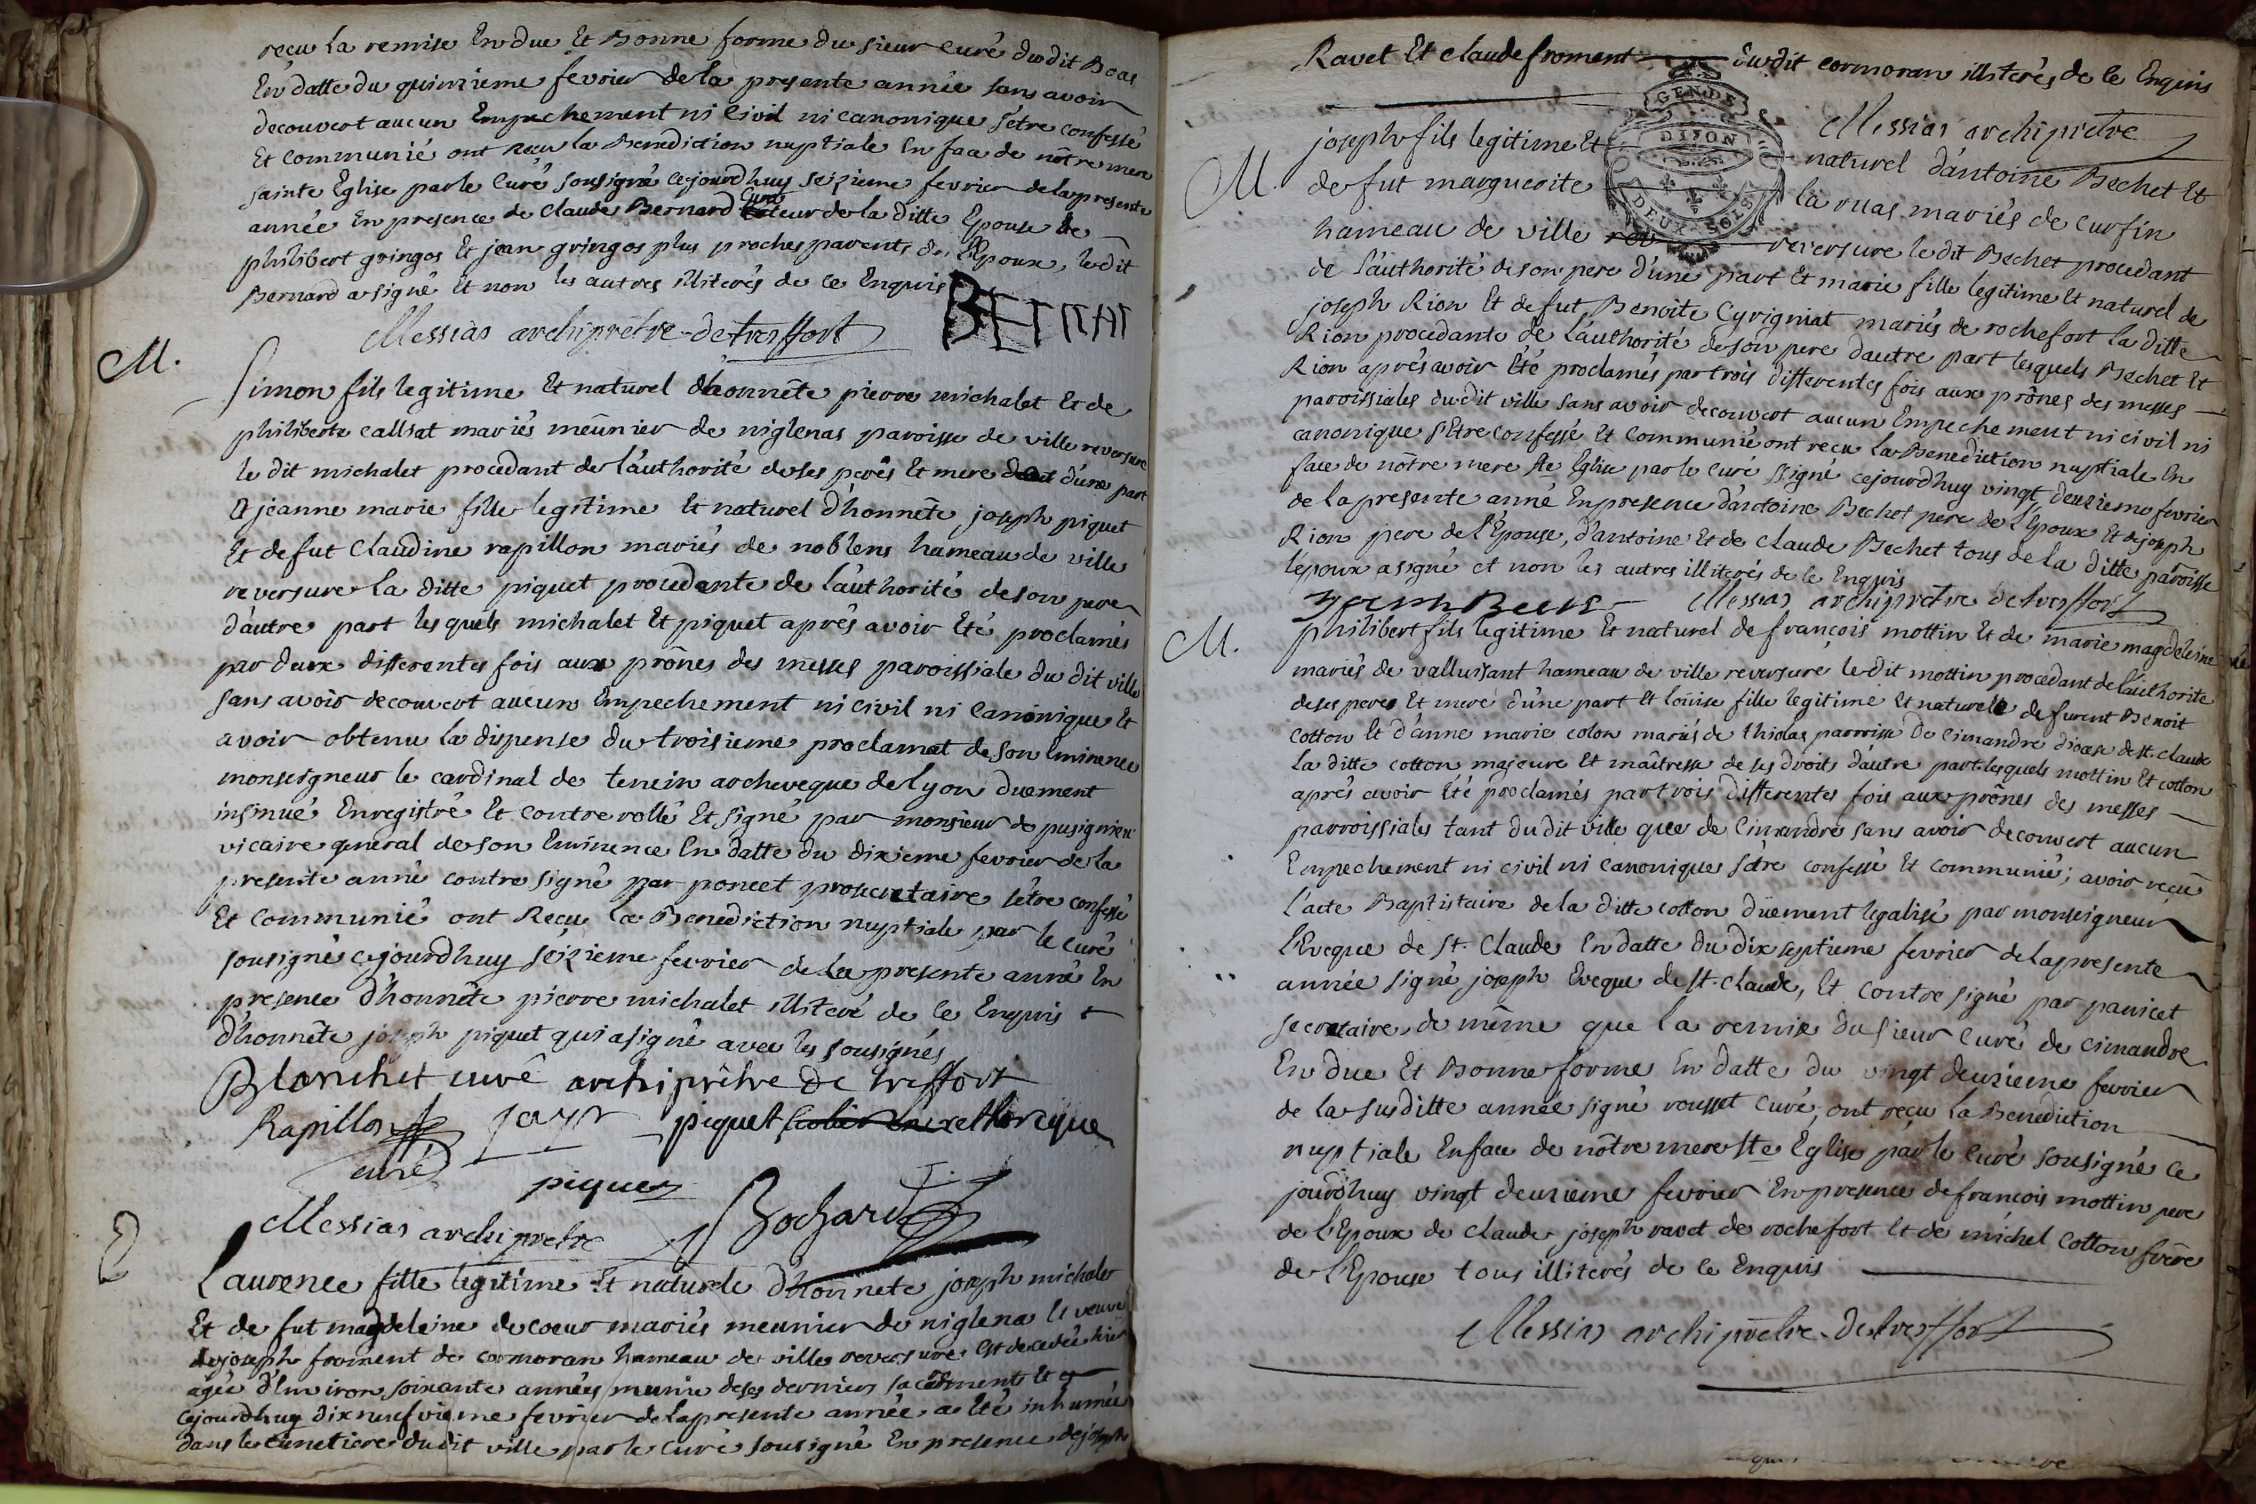 reçu la remise En due Et Bonne forme du sieur curé dudit Boas
En datte du quinzieme fevrier de la presente année sans avoir
decouvert aucun Empechement ni civil ni canonique s'être confessé
Et communié ont reçu la Benediction nuptiale En face de nôtre mere
sainte Eglise par le curé sousigné cejourdhuy seizieme fevrier de la presente
année En presence de claude Bernard de la ditte Epouse de
philibert gringos Et jean gringos plus proches parents de l'Epoux, le dit
Bernard a signé Et non les autres illiterés de ce Enquis
Messias archiprêtre de treffort
M.
Simon fils legitime Et naturel d'honnête pierre michalet Et de
philiberte callsat mariés meûnier de niglenas paroisse de ville reversure
le dit michalet procedant de l'authorité de ses perês Et mere d'une part
Et jeanne marie fille legitime Et naturel d'honnête joseph piquet
Et de fut claudine rapillon mariés de noblens hameau de ville
reversure la ditte piquet procedante de l'authorité de son pere
d'autre part lesquels michalet Et piquet aprês avoir Eté proclamés
par deux differentes fois aux prônes des messes paroissiale du dit ville
sans avoir decouvert aucun Empechement ni civil ni canonique Et
avoir obtenu la dispense du troisieme proclamat de son Eminence
monseigneur le cardinal de tencin archeveque de lyon duement
insinué Enregistré Et contrerollé Et signé par monsieur de pusignieu
vicaire general de son Eminence En datte du dixieme fevrier de la
presente anné contresigné par poncet prosecretaire s'être confessé
Et communié ont Reçu la Benediction nuptiale par le curé
sousigné cejourdhuy seizieme fevrier de la presente anné En
presence d'honnête pierre michalet illiteré de ce Enquis Et
d'honnête joseph piquet qui a signé avec les sousignés
Blanchet curé archiprêtre de treffort
Rapillon jayr piquet rethoreque
curé piquet
Messias archiprêtre Bochard
Laurence fille legitime Et naturele d'honnete joseph michalet
Et de fut magdeleine decoeur mariés meunier de niglena Et veuve
de joseph froment de cormoran hameau de ville reversure Est decedée hier
agée d'Environ soixante années munie de ses derniers sacrements Et
cejourdhuy dix neufvieme fevrier de la presente année a Eté inhumée
dans le cimetiere du dit ville par le curé sousigné En presence de joseph
Ravet Et claude froment dudit cormoran illiterés de ce Enquis
GEN DE
DIJON
DEUX SOLS
Messias archiprêtre
M.
joseph fils legitime Et naturel d'antoine Bechet Et
de fut marguerite la ruas mariés de curfin
hameau de ville reversure le dit Bechet procedant
de l'authorité de son pere d'une part Et marie fille legitime Et naturel de
joseph Rion Et de fut Benoite Cyrigniat mariés de rochefort la ditte
Rion procedante de l'authorité de son pere d'autre part lesquels Bechet Et
Rion aprês avoir Eté proclamés par trois differentes fois aux prônes des messes
paroissiales dudit ville sans avoir decouvert aucun Empechement ni civil ni
canonique s'Etre confessé Et communié ont reçu la Benediction nuptiale En
face de nôtre mere ste Eglise par le curé ssigné cejourdhuy vingt deuzieme fevrier
de la presente anné En presence d'antoine Bechet pere de l'Epoux Et de joseph
Rion pere de l'Epouse, d'antoine Et de claude Bechet tous de la ditte paroisse
l'époux a signé et non les autres illiterés de ce Enquis
Messias archiprêtre de treffort
M.
philibert fils legitime Et naturel de françois mottin Et de marie magdeleine
mariés de vallussant hameau de ville reversure le dit mottin procedant de l'authorité
de ses peres Et mere d'une part Et loüise fille legitime Et naturele de furent Benoit
cotton Et d'anne marie colon mariés de thiolas parroisse de cimandre diocese de st. claude
la ditte cotton majeure Et maîtresse de ses droits d'autre part lesquels mottin Et cotton
aprês avoir Eté proclamés par trois differentes fois aux prônes des messes
parroissiales tant du dit ville que de cimandre sans avoir decouvert aucun
Empechement ni civil ni canonique s'être confessé Et communié; avoir reçu
l'acte Baptistaire de la ditte cotton düement legalisé par monseigneur
l'Eveque de st. claude En datte du dix septieme fevrier de la presente
année signé joseph Eveque de st. claude, Et contresigné par panicet
secretaire, de même que la remise du sieur curé de cimandre
En due Et Bonne forme En datte du vingt deuzieme fevrier
de la susditte année signé rousset curé, ont reçu la Benediction
nuptiale En face de nôtre mere ste Eglise par le curé sousigné ce
jourdhuy vingt deuzieme fevrier En presence de françois mottin pere
de l'Epoux de claude joseph ravet de rochefort Et de michel cotton frère
de l'Epouse tous illiterés de ce Enquis
Messias archiprêtre de treffort